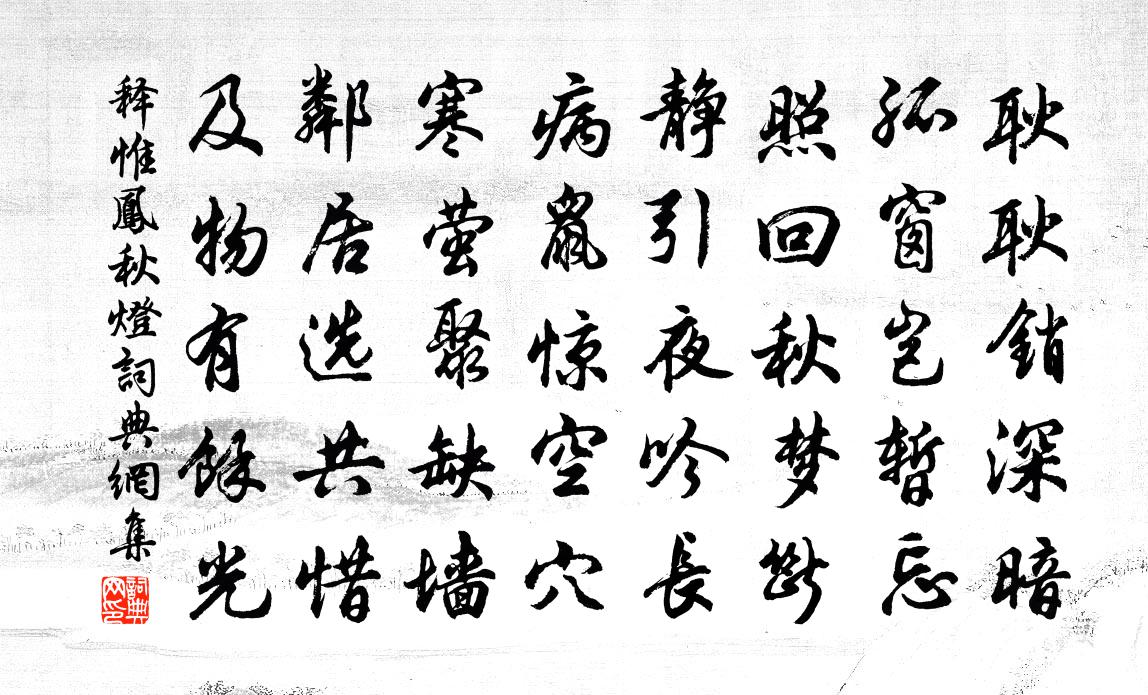 耿耿銷深暗
孤窗岂暫忘
照回秋梦断
静引夜吟长
病鼠惊空穴
寒萤聚缺墙
鄰居选共惜
及物有餘光
释惟鳳秋燈詞典網集
詞典网印